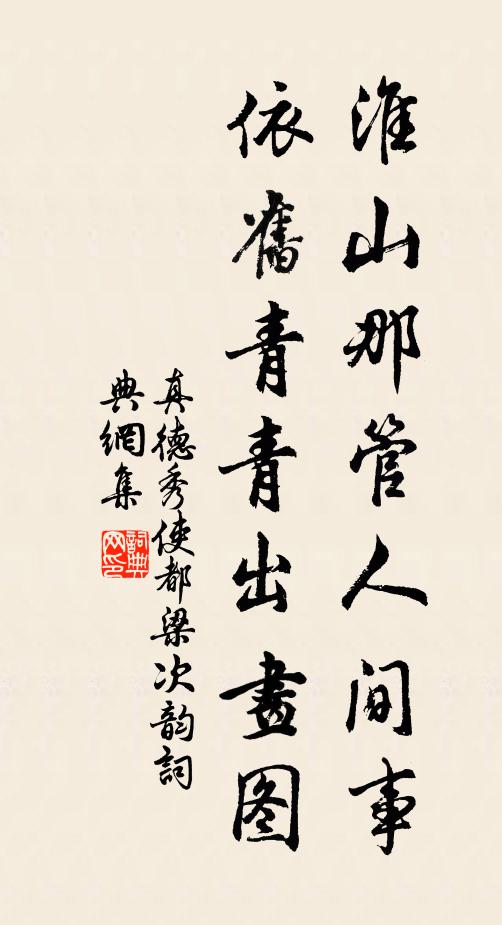 淮山那管人间事
依舊青青出畫图
真德秀使都梁次韵詞
典網集
詞典网印